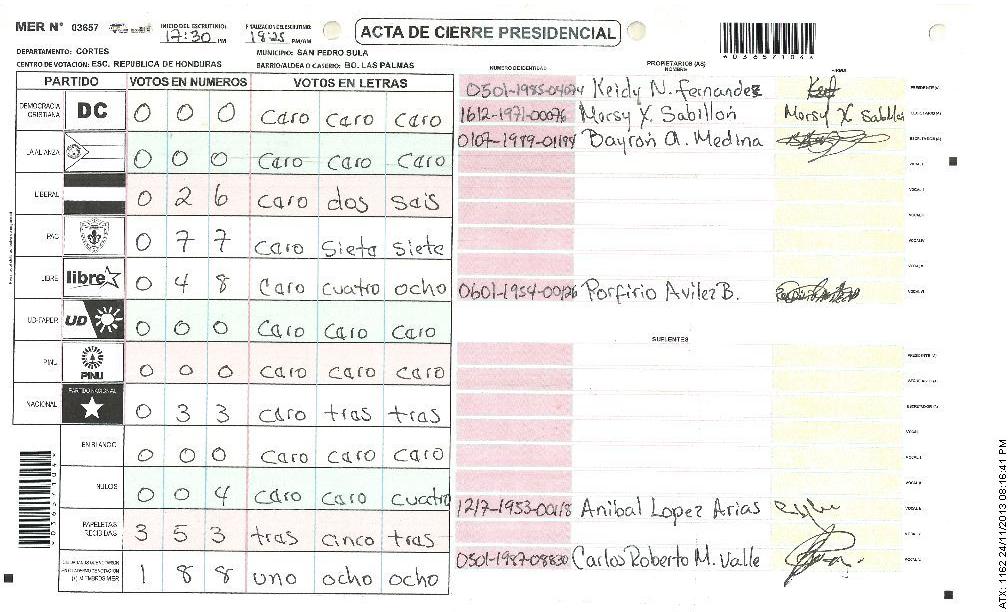 MER Nº 03657
INICIO DEL ESCRUTINIO: 17:30 PM
FINALIZACION DEL ESCRUTINIO: 18:25 PM/AM
ACTA DE CIERRE PRESIDENCIAL
*03657104*
DEPARTAMENTO: CORTES
MUNICIPIO: SAN PEDRO SULA
CENTRO DE VOTACION: ESC. REPUBLICA DE HONDURAS
BARRIO/ALDEA O CASERIO: BO. LAS PALMAS
PARTIDO VOTOS EN NUMEROS VOTOS EN LETRAS
DEMOCRACIA CRISTIANA DC 0 0 0 caro caro caro
LA ALIANZA 0 0 0 caro caro caro
LIBERAL 0 2 6 caro dos sais
PAC 0 7 7 caro sieta siete
LIBRE libre 0 4 8 caro cuatro ocho
UD-FAPER UD 0 0 0 caro caro caro
PINU PINU 0 0 0 caro caro caro
NACIONAL PARTIDO NACIONAL 0 3 3 caro tras tras
EN BLANCO 0 0 0 caro caro caro
NULOS 0 0 4 caro caro cuatro
PAPELETAS RECIBIDAS 3 5 3 tras cinco tras
(+) MIEMBROS MER 1 8 8 uno ocho ocho
NUMERO DE IDENTIDAD PROPIETARIOS (AS) NOMBRE FIRMA
0501-1985-04074 Keidy N. Fernandez PRESIDENTE (A)
1612-1971-00076 Morsy X. Sabillón Morsy X Sabillon SECRETARIO (A)
0107-1989-01198 Bayron A. Medina ESCRUTADOR (A)
VOCAL I
VOCAL II
VOCAL III
VOCAL IV
VOCAL V
0601-1954-00126 Porfirio Avilez B. VOCAL VI
SUPLENTES
PRESIDENTE (A)
SECRETARIO (A)
ESCRUTADOR (A)
VOCAL I
VOCAL II
VOCAL III
1217-1953-00118 Anibal Lopez Arias
0501-1987-08830 Carlos Roberto M. Valle
*03657104*
ATX: 1162 24/11/2013 08:16:41 PM